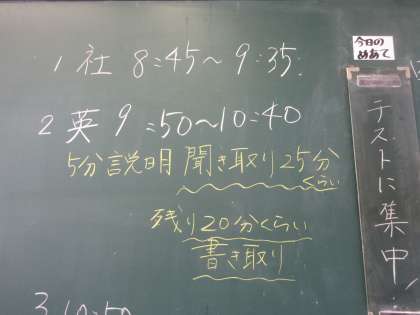 1 社 8:45〜9:35
2 英 9:50〜10:40
5分説明 聞き取り25分
くらい
残り20分くらい
書き取り
今日の
めあて
テストに集中!